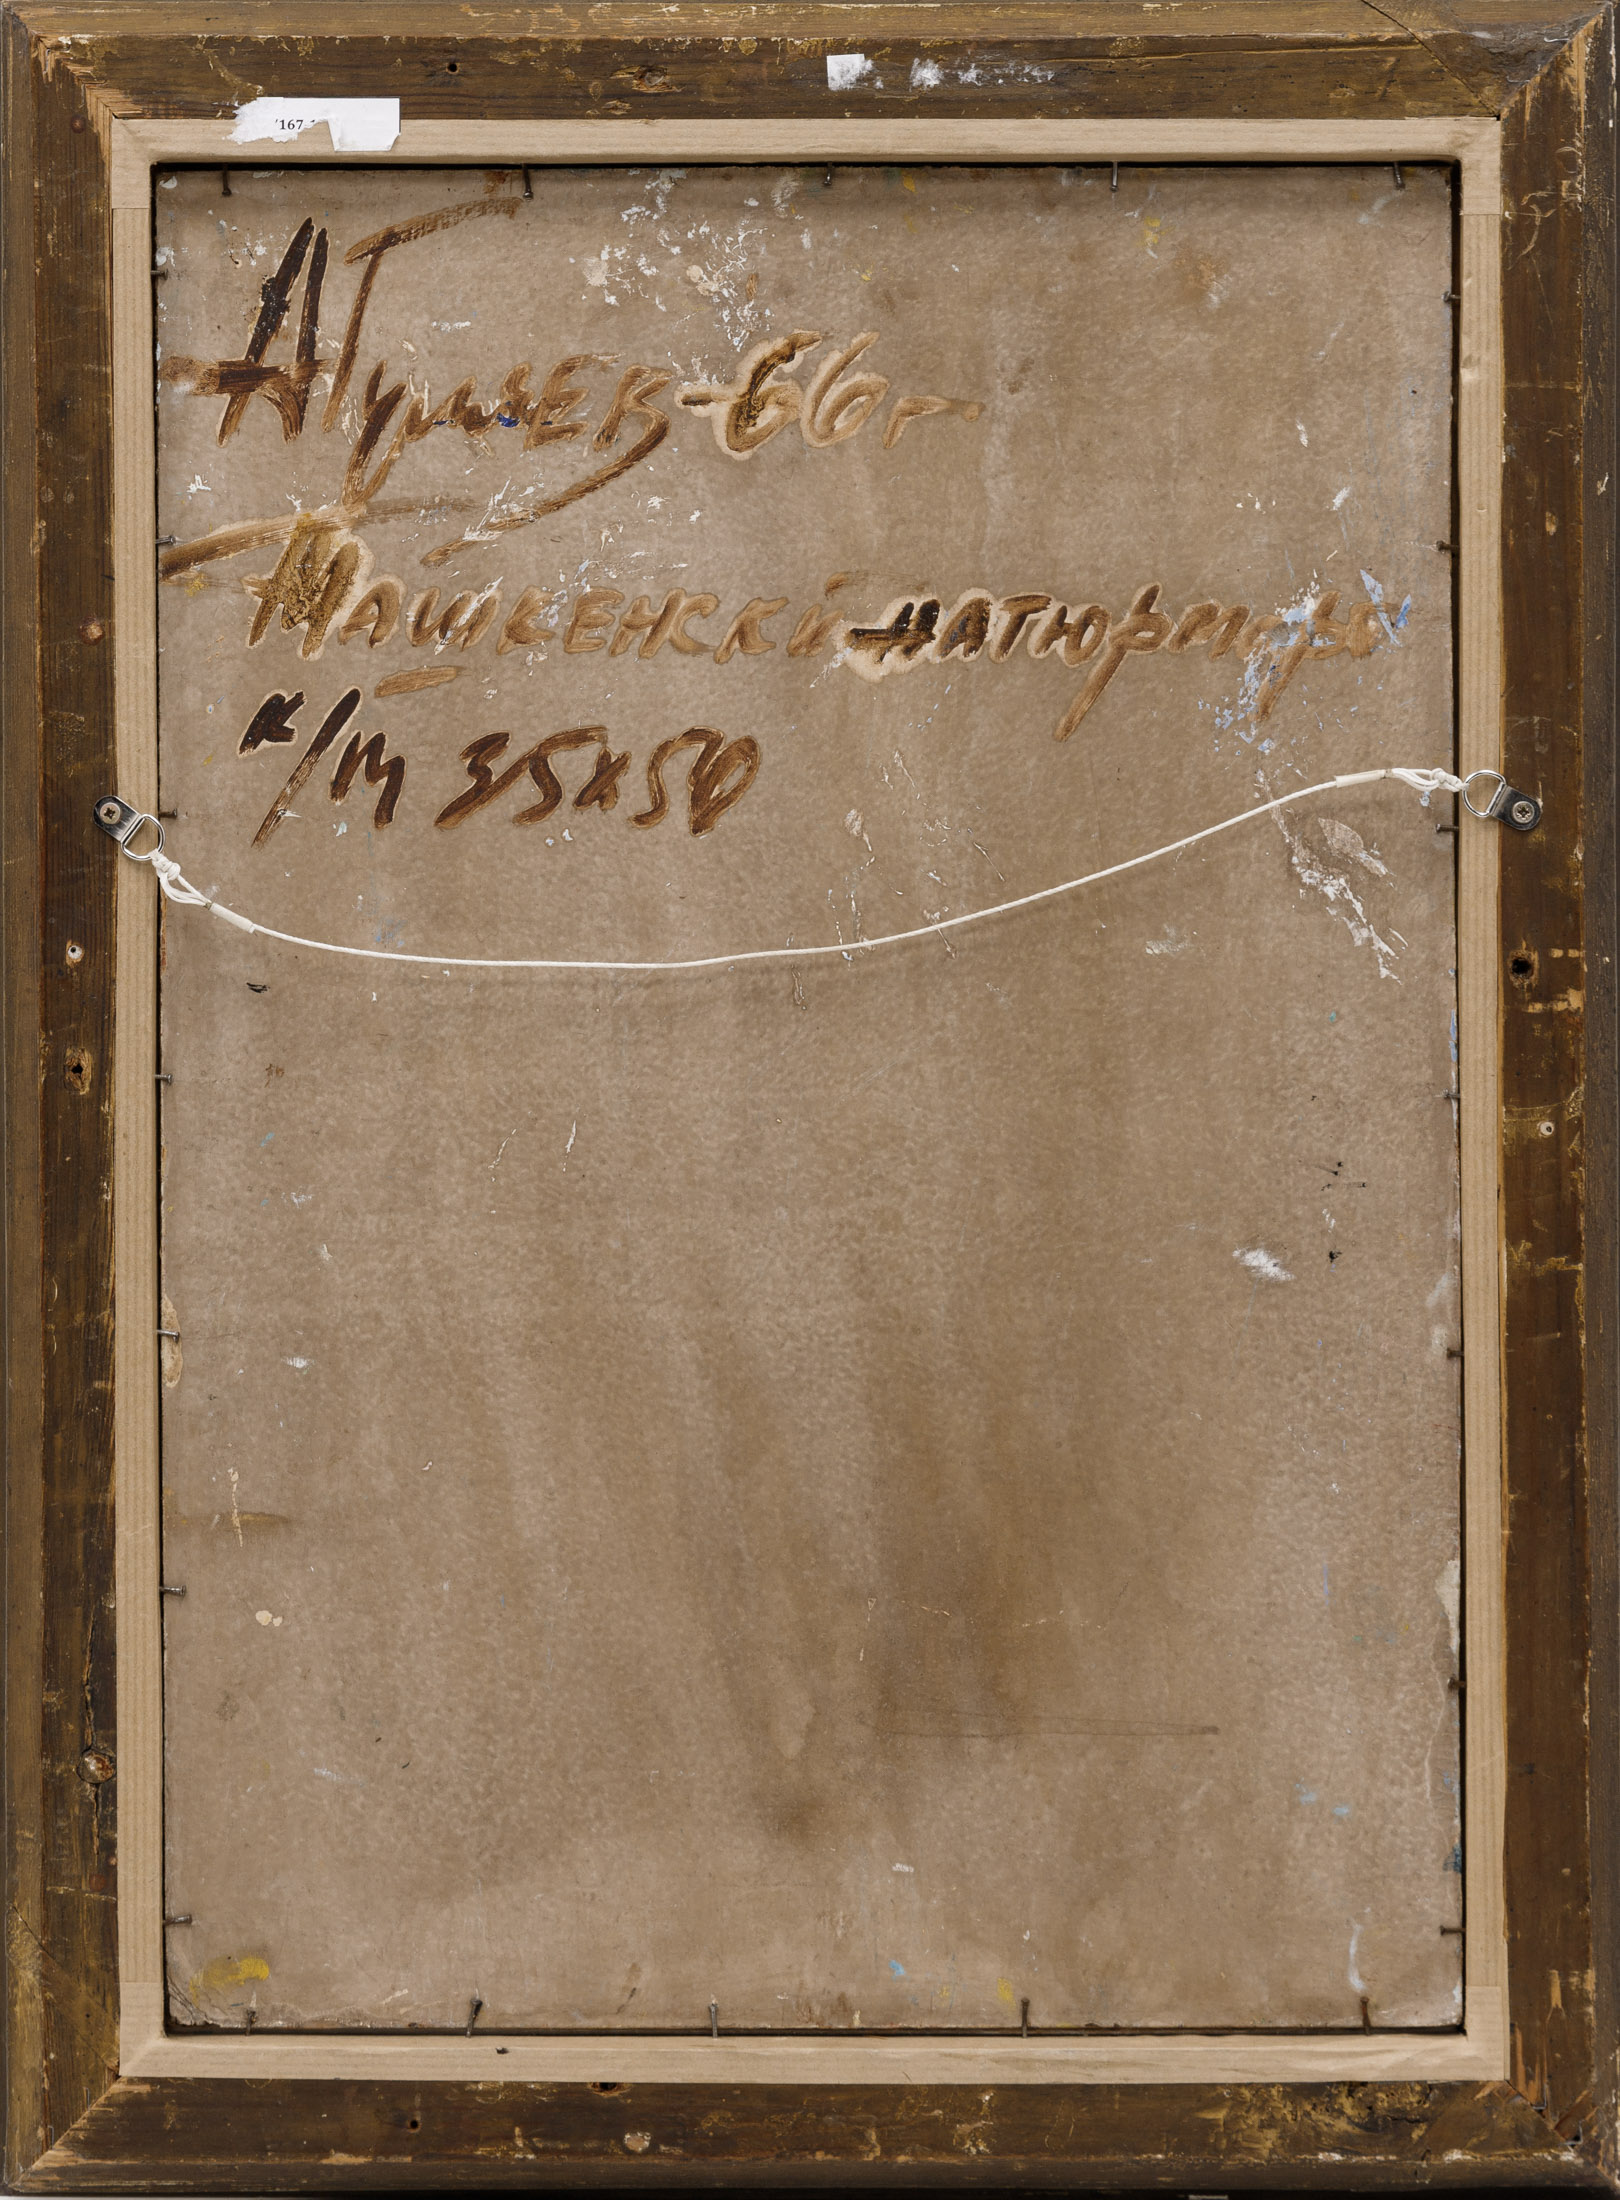 167-1
А Гуляев-66 г
Ташкенски натюрморт
к/м 35х50